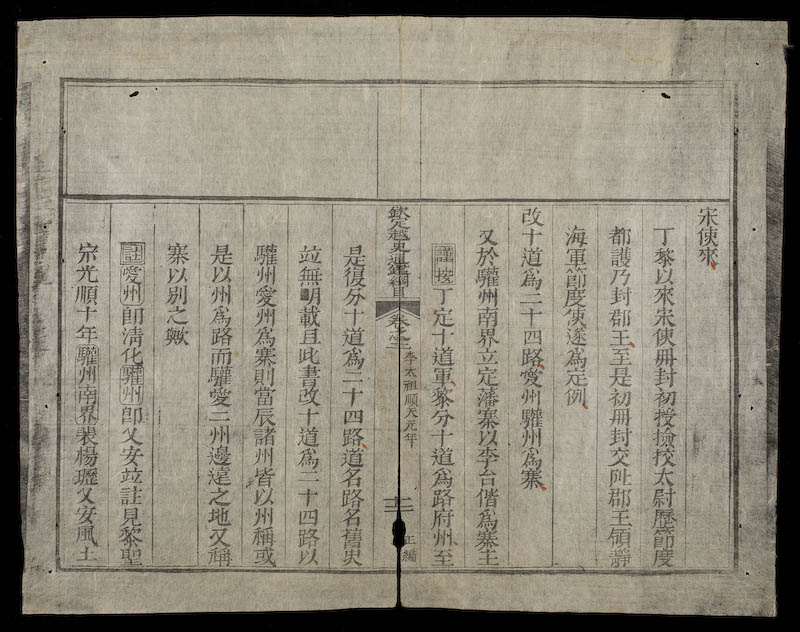 宋使來
丁黎以來宋使冊封初授撿挍太尉歷節度
都護乃封郡王至是初冊封交趾郡王領靜
海軍節度使遂爲定例
改十道爲二十四路愛州驩州爲寨
又於驩州南界立定藩寨以李台偕爲寨主
謹按丁定十道軍黎分十道爲路府州至
欽定越史通鑑綱目 卷之二 李太祖順天元年 十二 正編
是復分十道爲二十四路道名路名舊史
竝無明載且此書改十道爲二十四路以
驩州愛州爲寨則當辰諸州皆以州稱或
是以州爲路而驩愛二州邊遠之地又稱
寨以別之歟
註愛州卽淸化驩州卽乂安竝註見黎聖
宗光順十年驩州南界裴楊瓑乂安風土